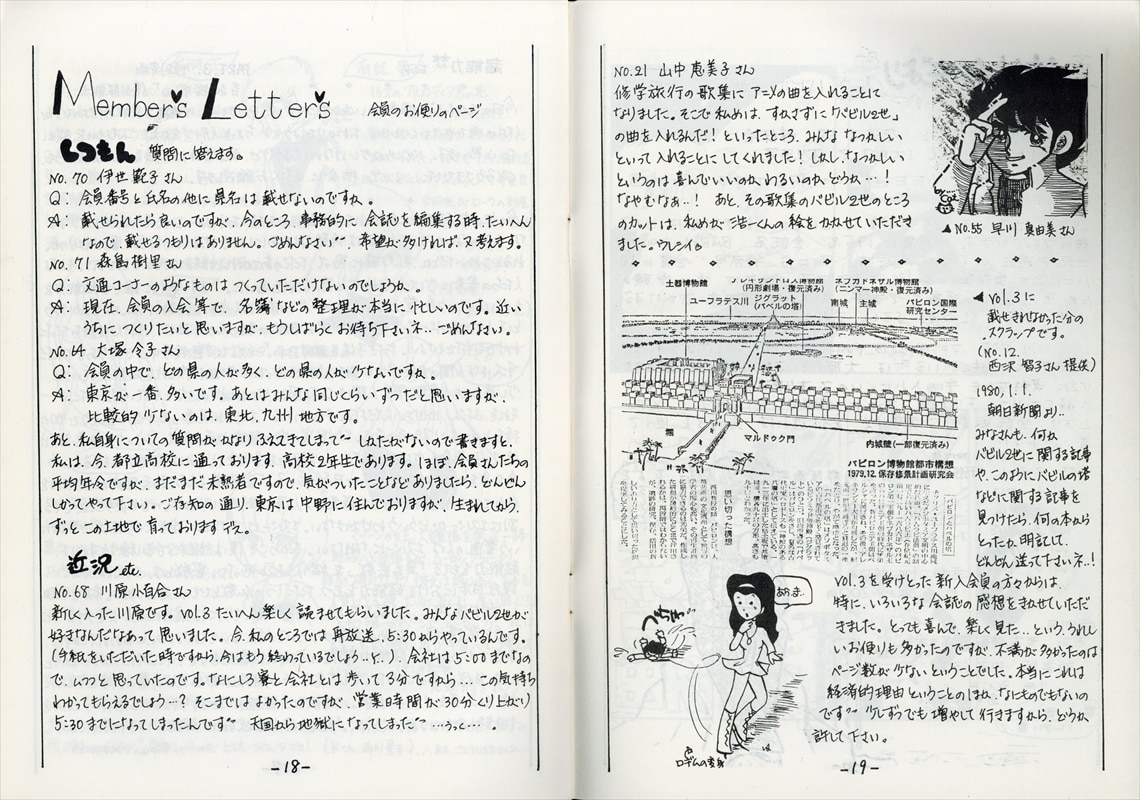 Member's Letters 会員のお便りのページ
しつもん 質問に答えます。
No. 70 伊世範子さん
Q: 会員番号と氏名の他に県名は載せないのですか。
A: 載せられたら良いのですが、今のところ、事務的に会誌を編集する時、たいへん
なので、載せるつもりはありません。ごめんなさい 希望が多ければ、又考えます。
No. 71 森島樹里さん
Q: 文通コーナーのようなものはつくっていただけないのでしょうか。
A: 現在、会員の入会等で、名簿などの整理が本当に忙しいのです。近い
うちにつくりたいと思いますが、もうしばらくお待ち下さいネ.. ごめんなさい。
No. 64 大塚令子さん
Q: 会員の中で、どの県の人が多く、どの県の人が少ないですか。
A: 東京が一番、多いです。あとはみんな同じくらいずつだと思いますが、
比較的少ないのは、東北、九州地方です。
あと、私自身についての質問がかなりふえてきてしまって しかたがないので書きますと、
私は、今、都立高校に通っております、高校2年生であります。ほぼ、会員さんたちの
平均年令ですが、まだまだ未熟者ですので、気がついたことなどありましたら、どんどん
しかってやって下さい。ご存知の通り、東京は中野に住んでおりますが、生まれてから、
ずっとこの土地で育っておりますデス。
近況 etc.
No. 68 川原小百合さん
新しく入った川原です。vol.3 たいへん楽しく読ませてもらいました。みんなバビル2世が
好きなんだなあって思いました。今、私のところでは再放送、5:30からやっているんです。
(手紙をいただいた時ですから、今はもう終わっているでしょう…と.) 会社は5:00までなの
で、ムフッと思っていたのです。なにしろ寮と会社とは歩いて3分ですから… この気持ち
わかってもらえるでしょう…? そこまではよかったのですが、営業時間が30分くり上がり
5:30までになってしまったんです 天国から地獄になってしまった …うっと…。
-18-
No. 21 山中恵美子さん
修学旅行の歌集にアニメの曲を入れることに
なりました。そこで私めは、すかさずに「バビル2世」
の曲を入れるんだ! といったところ、みんななつかしい
といって入れることにしてくれました! しかし、なつかしい
というのは喜んでいいのか、わるいのか、どうか…!
なやむなぁ..! あと、その歌集のバビル2世のところ
のカットは、私めが浩一くんの絵をかかせていただき
ました。ウレシイ。
▲No.55 早川真由美さん
土器博物館
(円形劇場・復元済み)
ネブカドネザル博物館
(ニンマー神殿・復元済み)
ユーフラテス川
ジグラット
(バベルの塔)
南城
主城
バビロン国際
研究センター
堀
マルドゥク門
内城壁(一部復元済み)
バビロン博物館都市構想
1979.12. 保存修景計画研究会
思い切った構想
◀ vol.3に
載せきれなかった分の
スクラップです。
(No.12.
西沢智子さん提供)
1980, 1. 1.
朝日新聞より..
みなさんも、何か
バビル2世に関する記事
や、このようにバビルの塔
などに関する記事を
見つけたら、何の本から
とったか、明記して、
どんどん送って下さいネ..!
vol.3を受けとった新入会員の方々からは、
特に、いろいろな会誌の感想をきかせていただ
きました。とっても喜んで、楽しく見た.. という、うれし
いお便りも多かったのですが、不満が多かったのは
ページ数が少ないということでした。本当にこれは
経済的理由ということのほか、なにものでもないの
です 少しずつでも増やして行きますから、どうか、
許して下さい。
あらま..
ロデムの変身
-19-